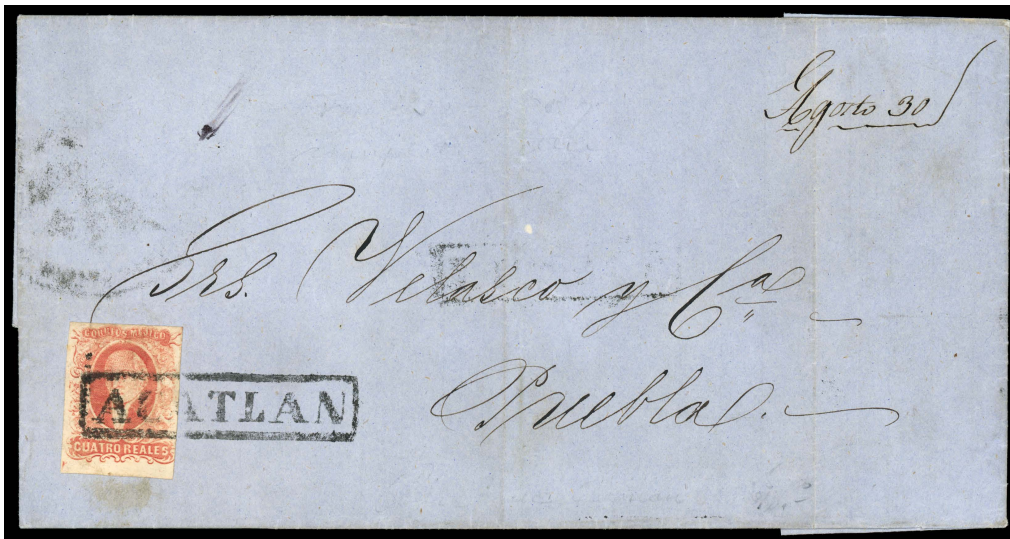 Agosto 30
Srs. Velasco y Ca.
Puebla.
CORREOS MEJICO
ACATLAN
CUATRO REALES